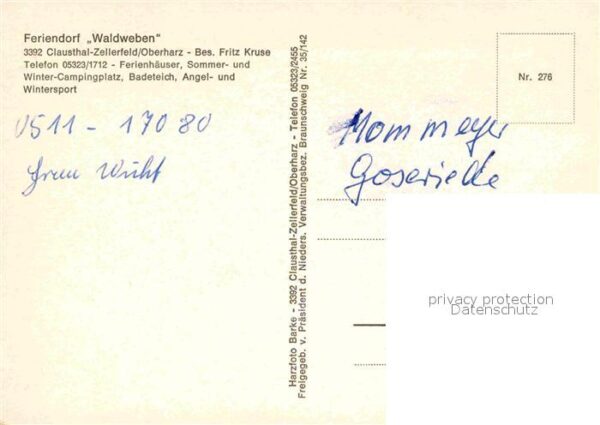 Feriendorf „Waldweben“
3392 Clausthal-Zellerfeld/Oberharz - Bes. Fritz Kruse
Telefon 05323/1712 - Ferienhäuser, Sommer- und
Winter-Campingplatz, Badeteich, Angel- und
Wintersport
0511 - 17080
Frau
Harzfoto Barke - 3392 Clausthal-Zellerfeld/Oberharz - Telefon 05323/2455
Freigegeb. v. Präsident d. Nieders. Verwaltungsbez. Braunschweig Nr. 35/142
Nr. 276
Mommeyer
Goseriede
privacy protection
Datenschutz